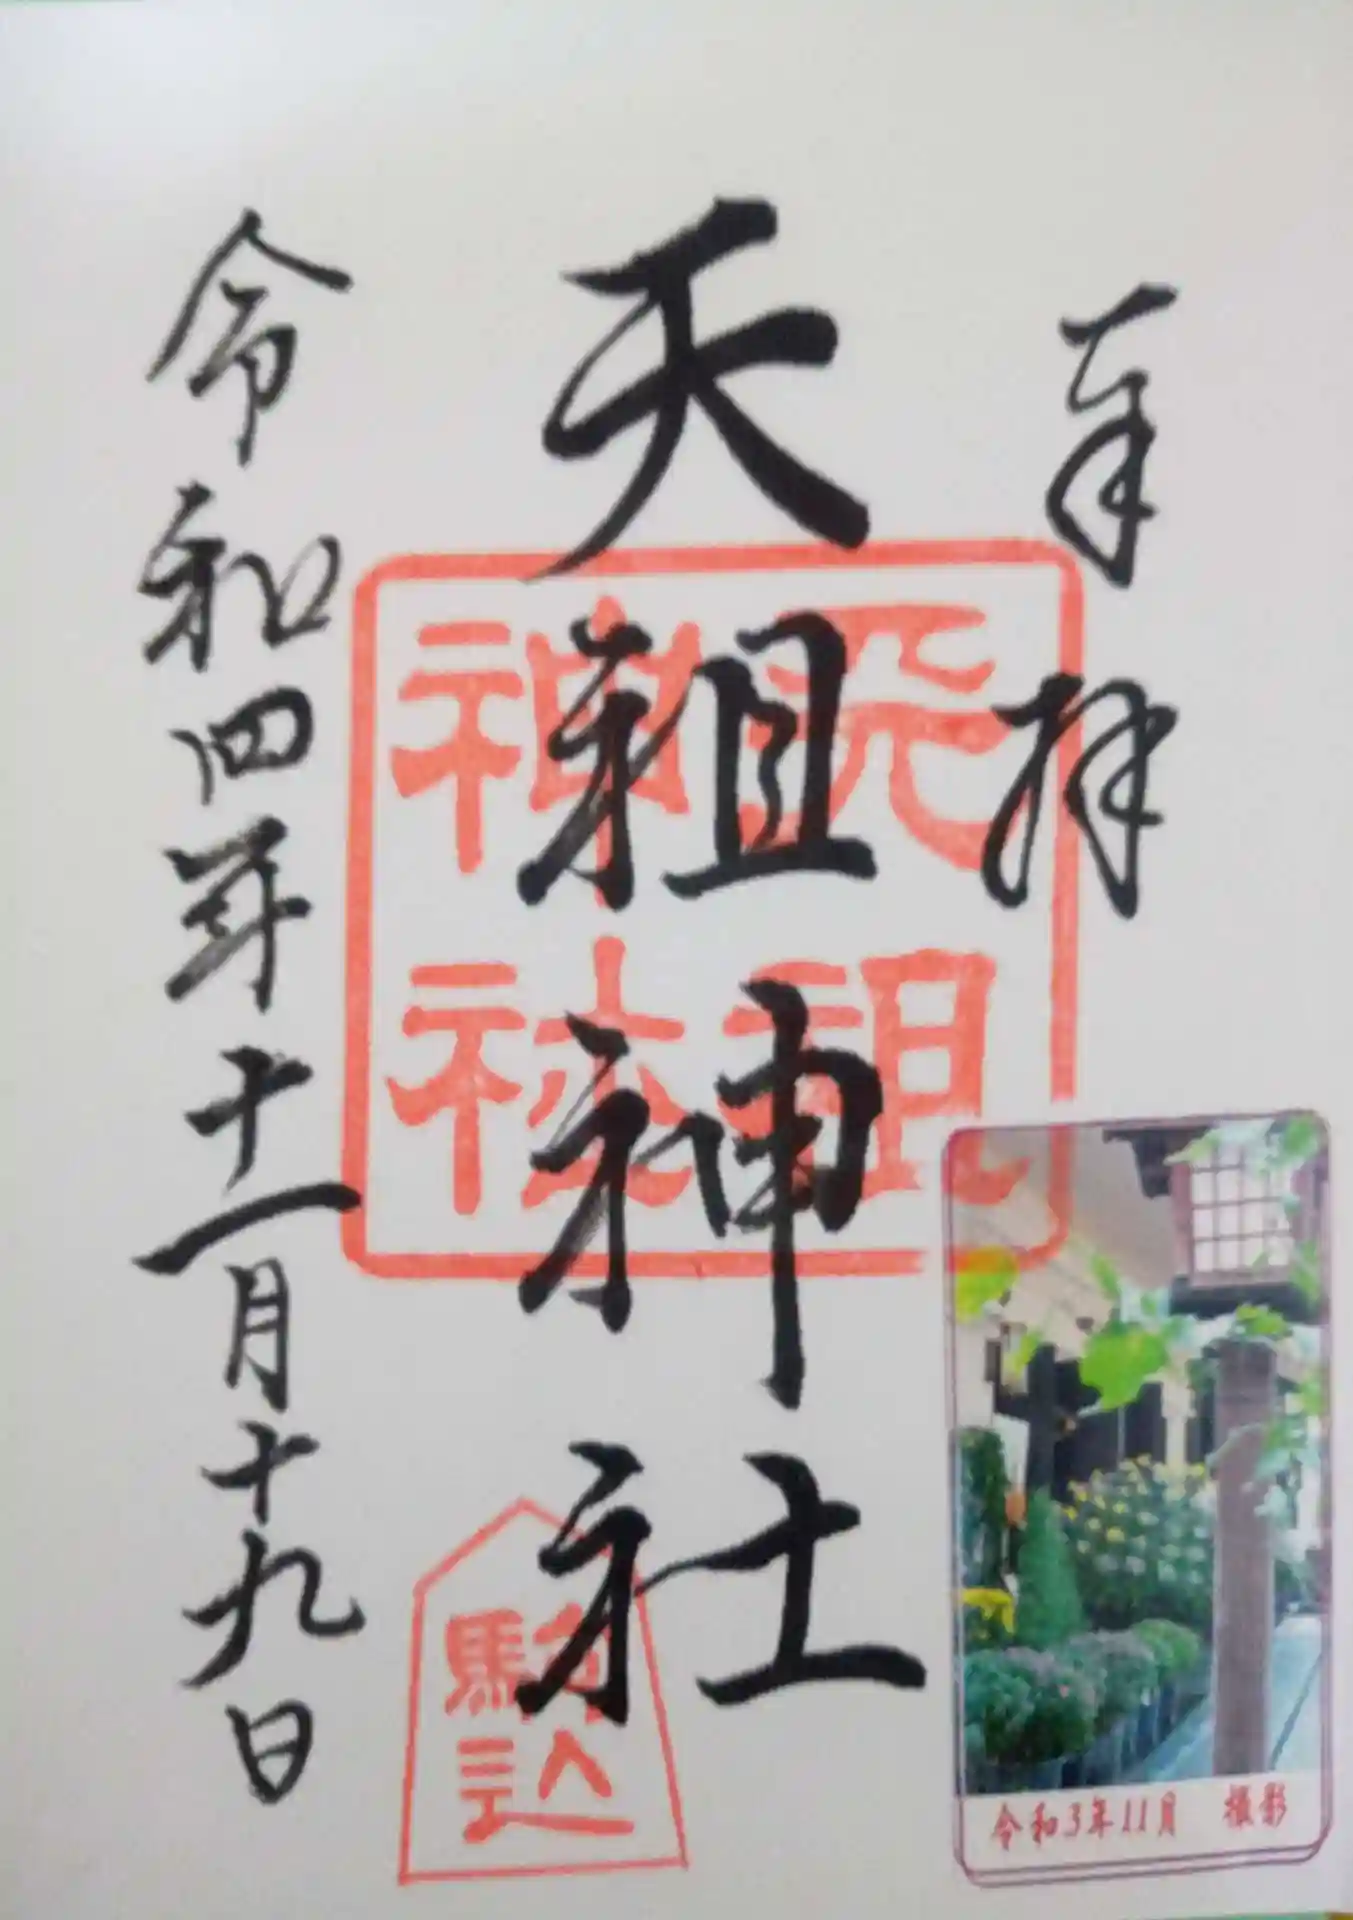 奉拝
天祖神社
令和四年十一月十九日
天祖
神社
駒込
令和3年11月 撮影